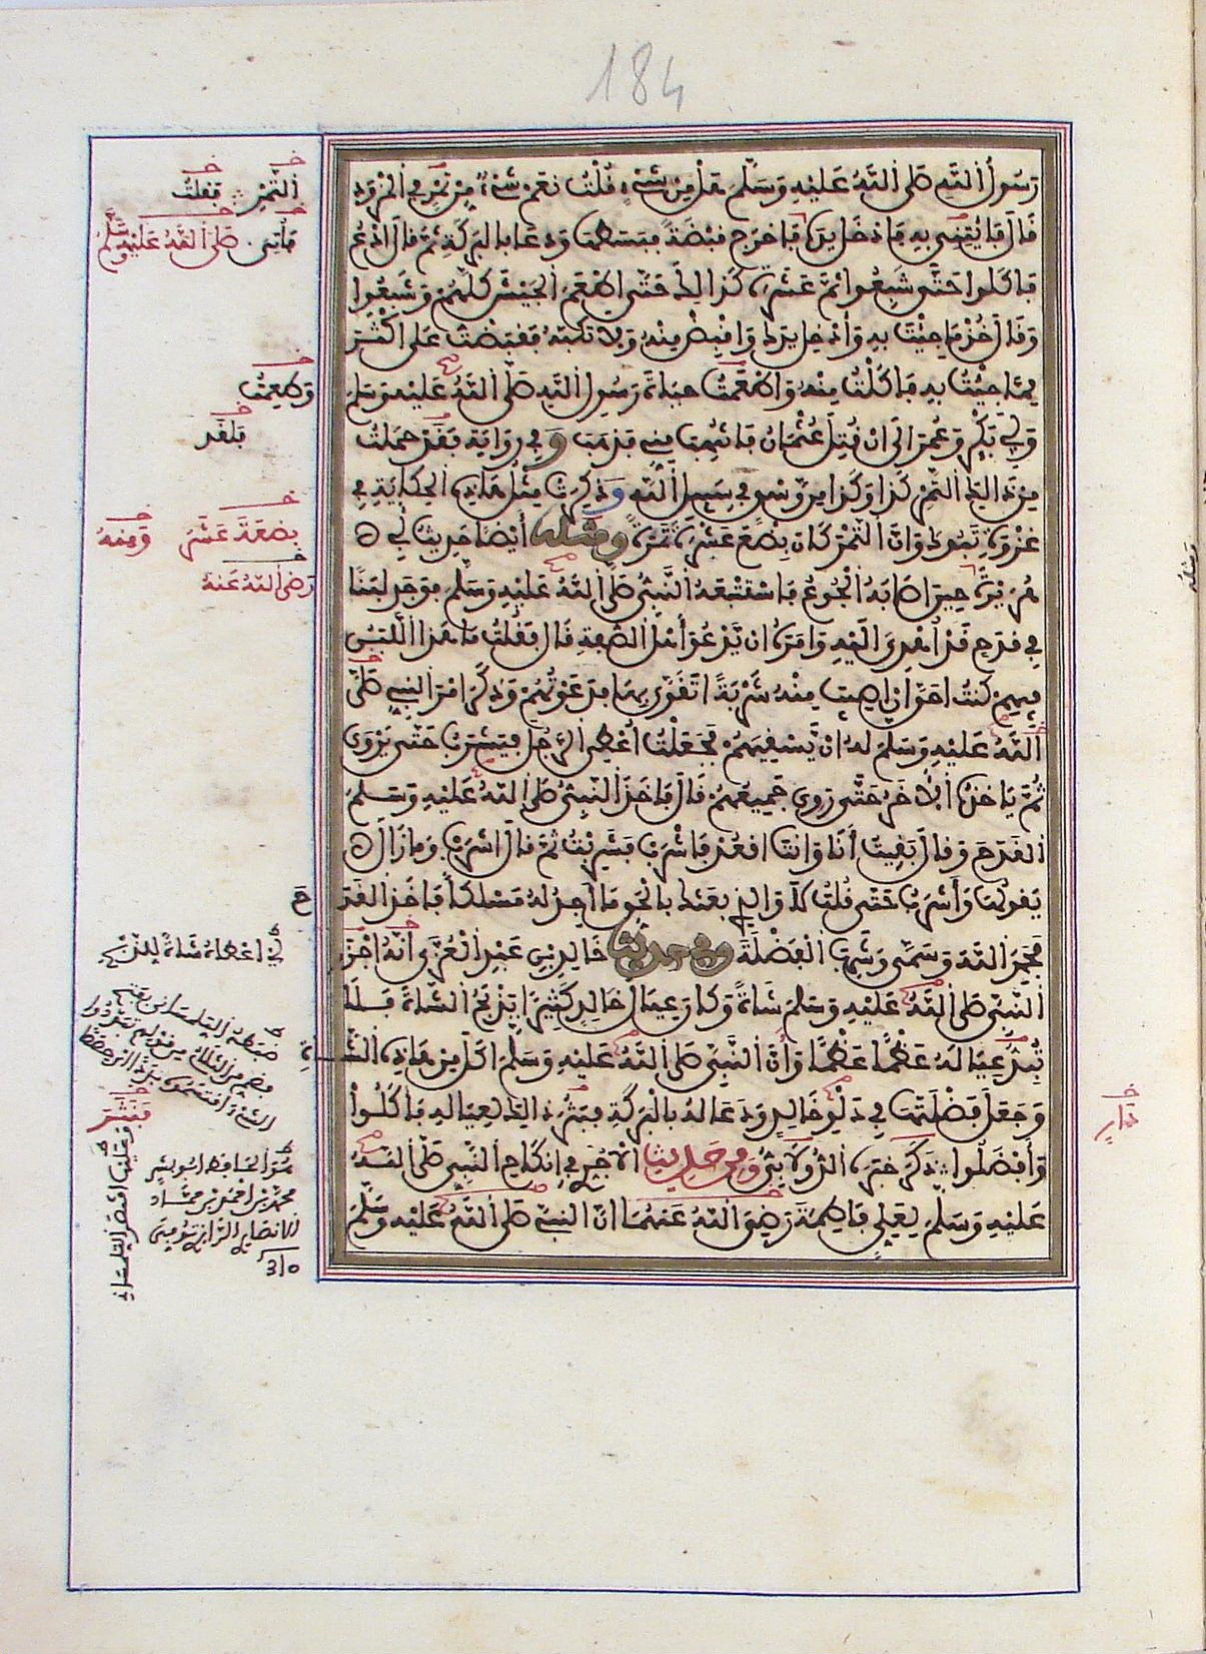 184
رَسُولُ اللَّهِ صَلَّى اللَّهُ عَلَيْهِ وَسَلَّمَ هَلْ مِنْ شَيْءٍ فَقُلْتُ نَعَمْ شَيْءٌ مِنْ تَمْرٍ فِي الْمِزْوَدِ
قَالَ فَأْتِنِي بِهِ فَأَدْخَلَ يَدَهُ فَأَخْرَجَ قَبْضَةً فَبَسَطَهَا وَدَعَا بِالْبَرَكَةِ ثُمَّ قَالَ ادْعُ
فَأَكَلُوا حَتَّى شَبِعُوا ثُمَّ عَشَرَةً كَذَالِكَ حَتَّى أَطْعَمَ الْجَيْشَ كُلَّهُمْ وَشَبِعُوا
وَقَالَ خُذْ مَا جِئْتَ بِهِ وَأَدْخِلْ يَدَكَ وَاقْبِضْ مِنْهُ وَلَا تَكُبَّهُ فَقَبَضْتُ عَلَى أَكْثَرَ
مِمَّا جِئْتُ بِهِ فَأَكَلْتُ مِنْهُ وَأَطْعَمْتُ حَيَاةَ رَسُولِ اللَّهِ صَلَّى اللَّهُ عَلَيْهِ وَسَلَّمَ
وَأَبِي بَكْرٍ وَعُمَرَ إِلَى أَنْ قُتِلَ عُثْمَانُ فَانْتُهِبَ مِنِّي فَذَهَبَ وَفِي رِوَايَةٍ فَقَدْ حَمَلْتُ
مِنْ ذَالِكَ التَّمْرِ كَذَا وَكَذَا مِنْ وَسْقٍ فِي سَبِيلِ اللَّهِ وَذُكِرَتْ مِثْلُ هَاذِهِ الْحِكَايَةِ فِي
غَزْوَةِ تَبُوكَ وَأَنَّ التَّمْرَ كَانَ بِضْعَ عَشْرَةَ تَمْرَةً وَمِنْهُ أَيْضًا حَدِيثُ أَبِي
هُرَيْرَةَ حِينَ أَصَابَهُ الْجُوعُ فَاسْتَتْبَعَهُ النَّبِيُّ صَلَّى اللَّهُ عَلَيْهِ وَسَلَّمَ فَوَجَدَ لَبَنًا
فِي قَدَحٍ قَدْ أُهْدِيَ إِلَيْهِ وَأَمَرَهُ أَنْ يَدْعُوَ أَهْلَ الصُّفَّةِ قَالَ فَقُلْتُ مَا هَذَا اللَّبَنُ
فِيهِمْ كُنْتُ أَحَقَّ أَنْ أُصِيبَ مِنْهُ شَرْبَةً أَتَقَوَّى بِهَا فَدَعَوْتُهُمْ وَذَكَرَ أَمْرَ النَّبِيِّ صَلَّى
اللَّهُ عَلَيْهِ وَسَلَّمَ لَهُ أَنْ يَسْقِيَهُمْ فَجَعَلْتُ أُعْطِي الرَّجُلَ فَيَشْرَبُ حَتَّى يَرْوَى
ثُمَّ يَأْخُذُهُ الْآخَرُ حَتَّى رَوِيَ جَمِيعُهُمْ قَالَ فَأَخَذَ النَّبِيُّ صَلَّى اللَّهُ عَلَيْهِ وَسَلَّمَ
الْقَدَحَ وَقَالَ بَقِيتُ أَنَا وَأَنْتَ اقْعُدْ فَاشْرَبْ فَشَرِبْتُ ثُمَّ قَالَ اشْرَبْ وَمَا زَالَ
يَقُولُهَا وَأَشْرَبُ حَتَّى قُلْتُ لَا وَالَّذِي بَعَثَكَ بِالْحَقِّ مَا أَجِدُ لَهُ مَسْلَكًا فَأَخَذَ الْقَدَ
حَ
فَحَمِدَ اللَّهَ وَسَمَّى وَشَرِبَ الْفَضْلَةَ وَفِي حَدِيثِ خَالِدِ بْنِ عَبْدِ الْعُزَّى أَنَّهُ أَجْزَرَ
النَّبِيَّ صَلَّى اللَّهُ عَلَيْهِ وَسَلَّمَ شَاةً وَكَانَ عِيَالُ خَالِدٍ كَثِيرًا يَذْبَحُ الشَّاةَ فَلَا
تُبِدُّ عِيَالَهُ عَظْمًا عَظْمًا وَأَنَّ النَّبِيَّ صَلَّى اللَّهُ عَلَيْهِ وَسَلَّمَ أَكَلَ مِنْ هَاذِهِ الشَّاةِ
وَجَعَلَ فَضْلَتَهَا فِي دَلْوِ خَالِدٍ وَدَعَا لَهُ بِالْبَرَكَةِ فَنَثَرَ ذَالِكَ لِعِيَالِهِ فَأَكَلُوا
وَأَفْضَلُوا ذَكَرَ خَبَرَهُ الدُّولَابِيُّ وَفِي حَدِيثِ الْآجُرِّيِّ فِي إِنْكَاحِ النَّبِيِّ صَلَّى اللَّهُ
عَلَيْهِ وَسَلَّمَ لِعَلِيٍّ فَاطِمَةَ رَضِيَ اللَّهُ عَنْهُمَا أَنَّ النَّبِيَّ صَلَّى اللَّهُ عَلَيْهِ وَسَلَّمَ
التَّمْرِ فَقُلْتُ
فَأْتِنِي صَلَّى اللَّهُ عَلَيْهِ وَسَلَّمَ
وَطَعِمْتُ
فَلَقَدْ
بِضْعَةَ عَشَرَ وَمِنْهُ
رَضِيَ اللَّهُ عَنْهُ
أَيْ أَعْطَاهُ شَاةً لِلذَّبْحِ
فَنَثَرَ
هُوَ الْحَافِظُ أَبُو بِشْرٍ
مُحَمَّدُ بْنُ أَحْمَدَ بْنِ حَمَّادٍ
الْأَنْصَارِيُّ الرَّازِيُّ
310